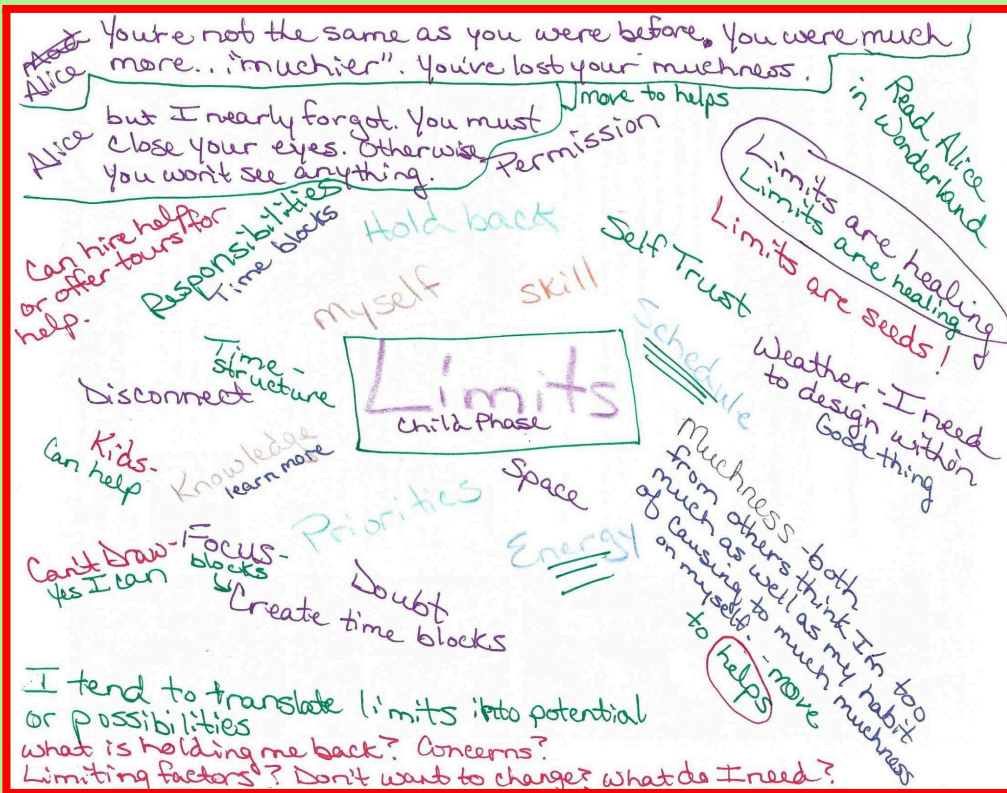 Mad You're not the same as you were before. You were much
Alice more... "muchier". You've lost your muchness.
move to helps
Alice but I nearly forgot. You must
close your eyes. Otherwise
you won't see anything.
Permission
Read Alice
in Wonderland
Limits are healing
Limits are healing
Limits are seeds!
Can hire help for
or offer tours for
help.
Responsibilities
Time blocks
Hold back
Self Trust
myself
skill
Schedule
Time-
structure
Disconnect
Limits
Child Phase
Weather - I need
to design within
Good thing
Kids-
Can help
Knowledge
learn more
Priorities
Space
Energy
Muchness - both
from others think I'm too
much as well as my habit
of causing to much muchness
on myself. - move
to helps
Can't Draw-
Yes I can
Focus-
blocks
Create time blocks
Doubt
I tend to translate limits into potential
or possibilities
What is holding me back? Concerns?
Limiting factors? Don't want to change? What do I need?